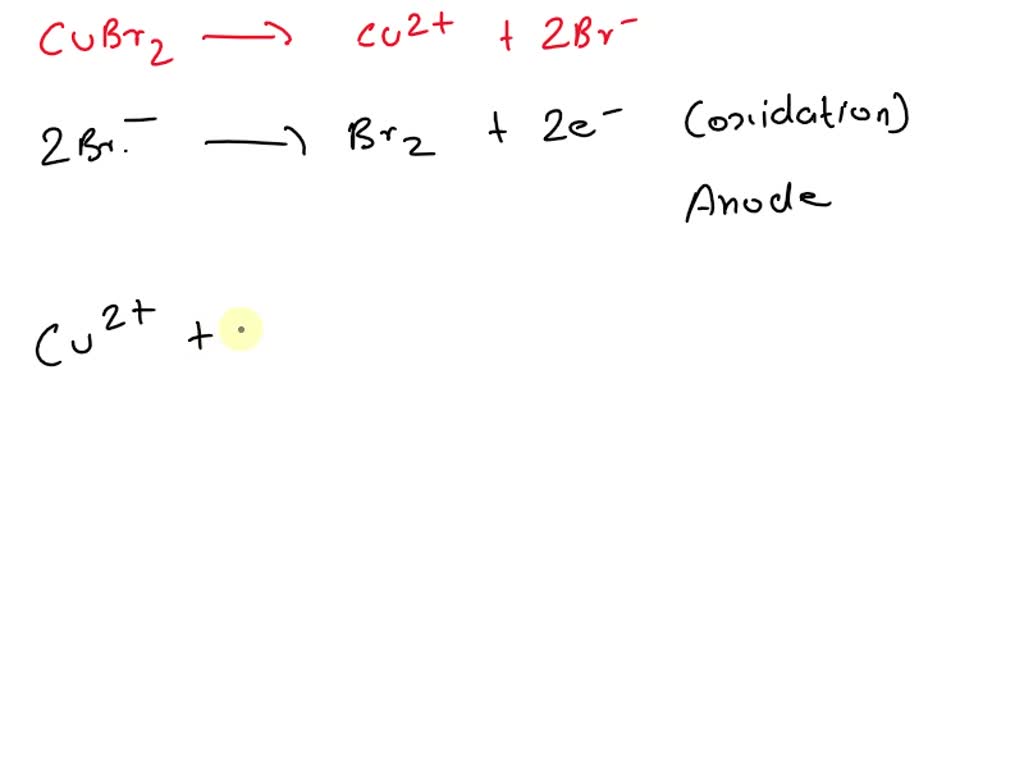 CuBr₂ ⟶ Cu²⁺ + 2Br⁻
2Br.⁻ ⟶ Br₂ + 2e⁻ (oxidation)
Anode
Cu²⁺ +